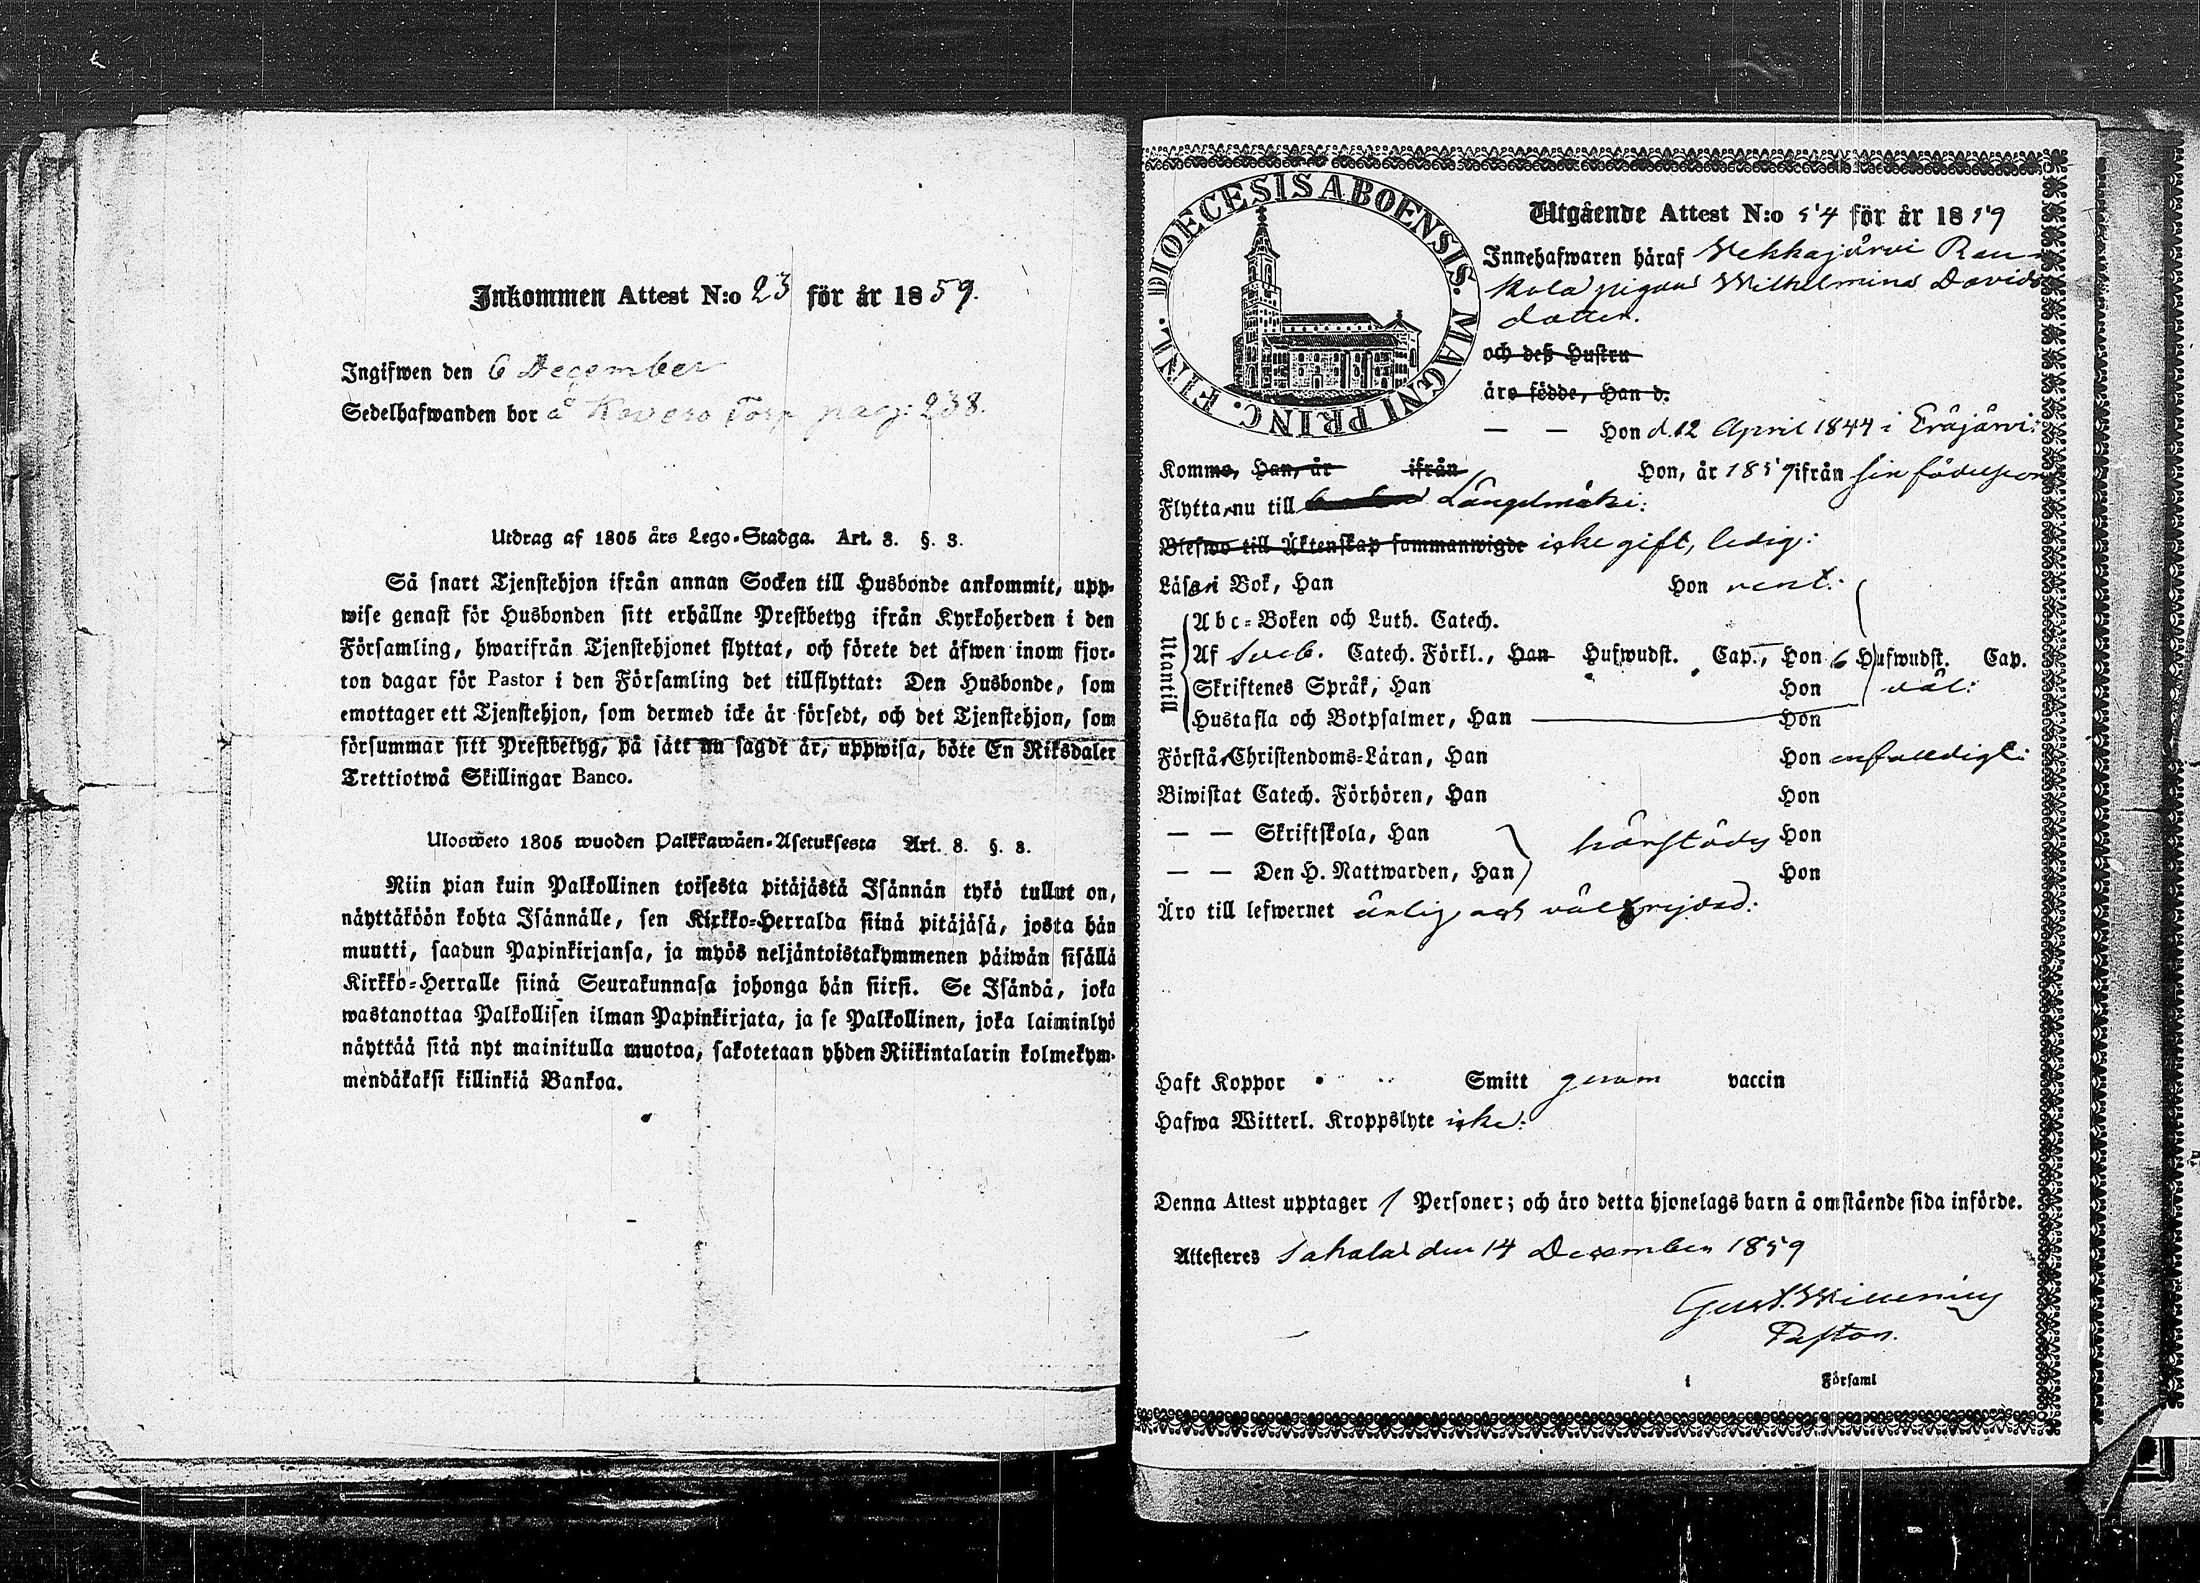 Inkommen Attest N:o 23 för år 1859.
Ingifwen den 6 December
Sedelhafwanden bor å Kovero Torp pag: 238.
Utdrag af 1805 års Lego-Stadga. Art. 8. §. 3.
Så snart Tjenstehjon ifrån annan Socken till Husbonde ankommit, upp-
wise genast för Husbonden sitt erhållne Prestbetyg ifrån Kyrkoherden i den
Församling, hwarifrån Tjenstehjonet flyttat, och förete det äfwen inom fjor-
ton dagar för Pastor i den Församling det tillflyttat: Den Husbonde, som
emottager ett Tjenstehjon, som dermed icke är försedt, och det Tjenstehjon, som
försummar sitt Prestbetyg, på sätt nu sagdt är, uppwisa, böte En Riksdaler
Trettiotwå Skillingar Banco.
Ulosweto 1805 wuoden Palkkawäen-Asetuksesta Art. 8. §. 3.
Niin pian kuin Palkollinen toisesta pitäjästä Isännän tykö tullut on,
näyttäköön kohta Isännälle, sen Kirkko-Herralda siinä pitäjäsä, josta hän
muutti, saadun Papinkirjansa, ja myös neljäntoistakymmenen päiwän sisällä
Kirkko-Herralle siinä Seurakunnasa johonga hän siirsi. Se Isändä, joka
wastanottaa Palkollisen ilman Papinkirjata, ja se Palkollinen, joka laiminlyö
näyttää sitä nyt mainitulla muotoa, sakotetaan yhden Riikintalarin kolmekym-
mendäkaksi killinkiä Bankoa.
DIOECESIS ABOENSIS. MAGNI PRINC. FINL.
Utgående Attest N:o 54 för år 1859
Innehafwaren häraf Vekkajärvi Rau-
kola pigan Wilhelmina Davids
dotter.
och deß Hustru
äro födde, Han d.
— — Hon d. 12 April 1844 i Eräjärvi:
Kommo, Han, år ifrån Hon, år 1859 ifrån sin
Flytta, nu till Längelmäki:
Blefwo till Äktenskap sammanwigde icke gift, ledig:
Läsa i Bok, Han Hon rent:
Utantill
Abc-Boken och Luth. Catech.
Af Sveb. Catech. Förkl., Han Hufwudst. Cap., Hon 6 Hufwudst. Cap.
Skriftenes Språk, Han Hon väl:
Hustafla och Botpsalmer, Han Hon
Förstå Christendoms-Läran, Han Hon enfaldigt:
Biwistat Catech. Förhören, Han Hon
— — Skriftskola, Han härstädes Hon
— — Den H. Nattwarden, Han Hon
Äro till lefwernet ärlig och välfrejdad:
Haft Koppor Smitt genom vaccin
Hafwa Witterl. Kroppslyte icke:
Denna Attest upptager 1 Personer; och äro detta hjonelags barn å omstående sida införde.
Attesteres Sahalax den 14 December 1859
Gust.
Pastor.
i Församl